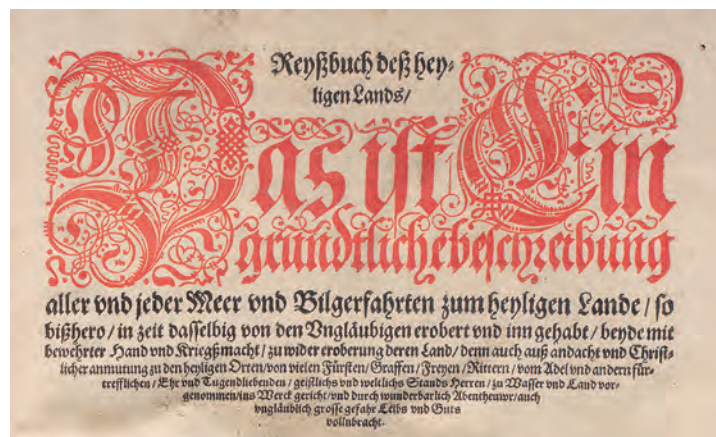 Reyßbuch deß hey⸗
ligen Lands/
Das ist Ein
gründtliche beschreibung
aller vnd jeder Meer vnd Bilgerfahrten zum heyligen Lande / so
bißhero / in zeit dasselbig von den Vngläubigen erobert vnd inn gehabt / beyde mit
bewehrter Hand vnd Kriegßmacht / zu wider eroberung deren Land / denn auch auß andacht vnd Christ⸗
licher anmutung zu den heyligen Orten / von vielen Fürsten / Graffen / Freyen / Rittern / vom Adel vnd andern für⸗
trefflichen / Ehr vnd Tugendliebenden / geistlichs vnd weltlichs Stands Herren / zu Wasser vnd Land vor⸗
genommen / ins Werck gericht / vnd durch wunderbarlich Abentheuwr / auch
vngläublich grosse gefahr Leibs vnd Guts
vollnbracht.